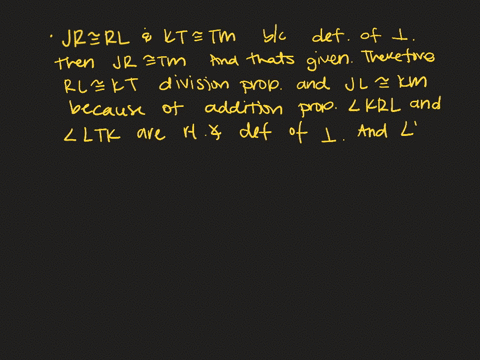 · JR≅RL & KT≅TM b/c def. of ⊥.
then JR≅TM And thats given. Therefore
RL≅KT division prop. and JL≅KM
because of addition prop. ∠KRL and
∠LTK are rt.∡ def of ⊥. And ∠'